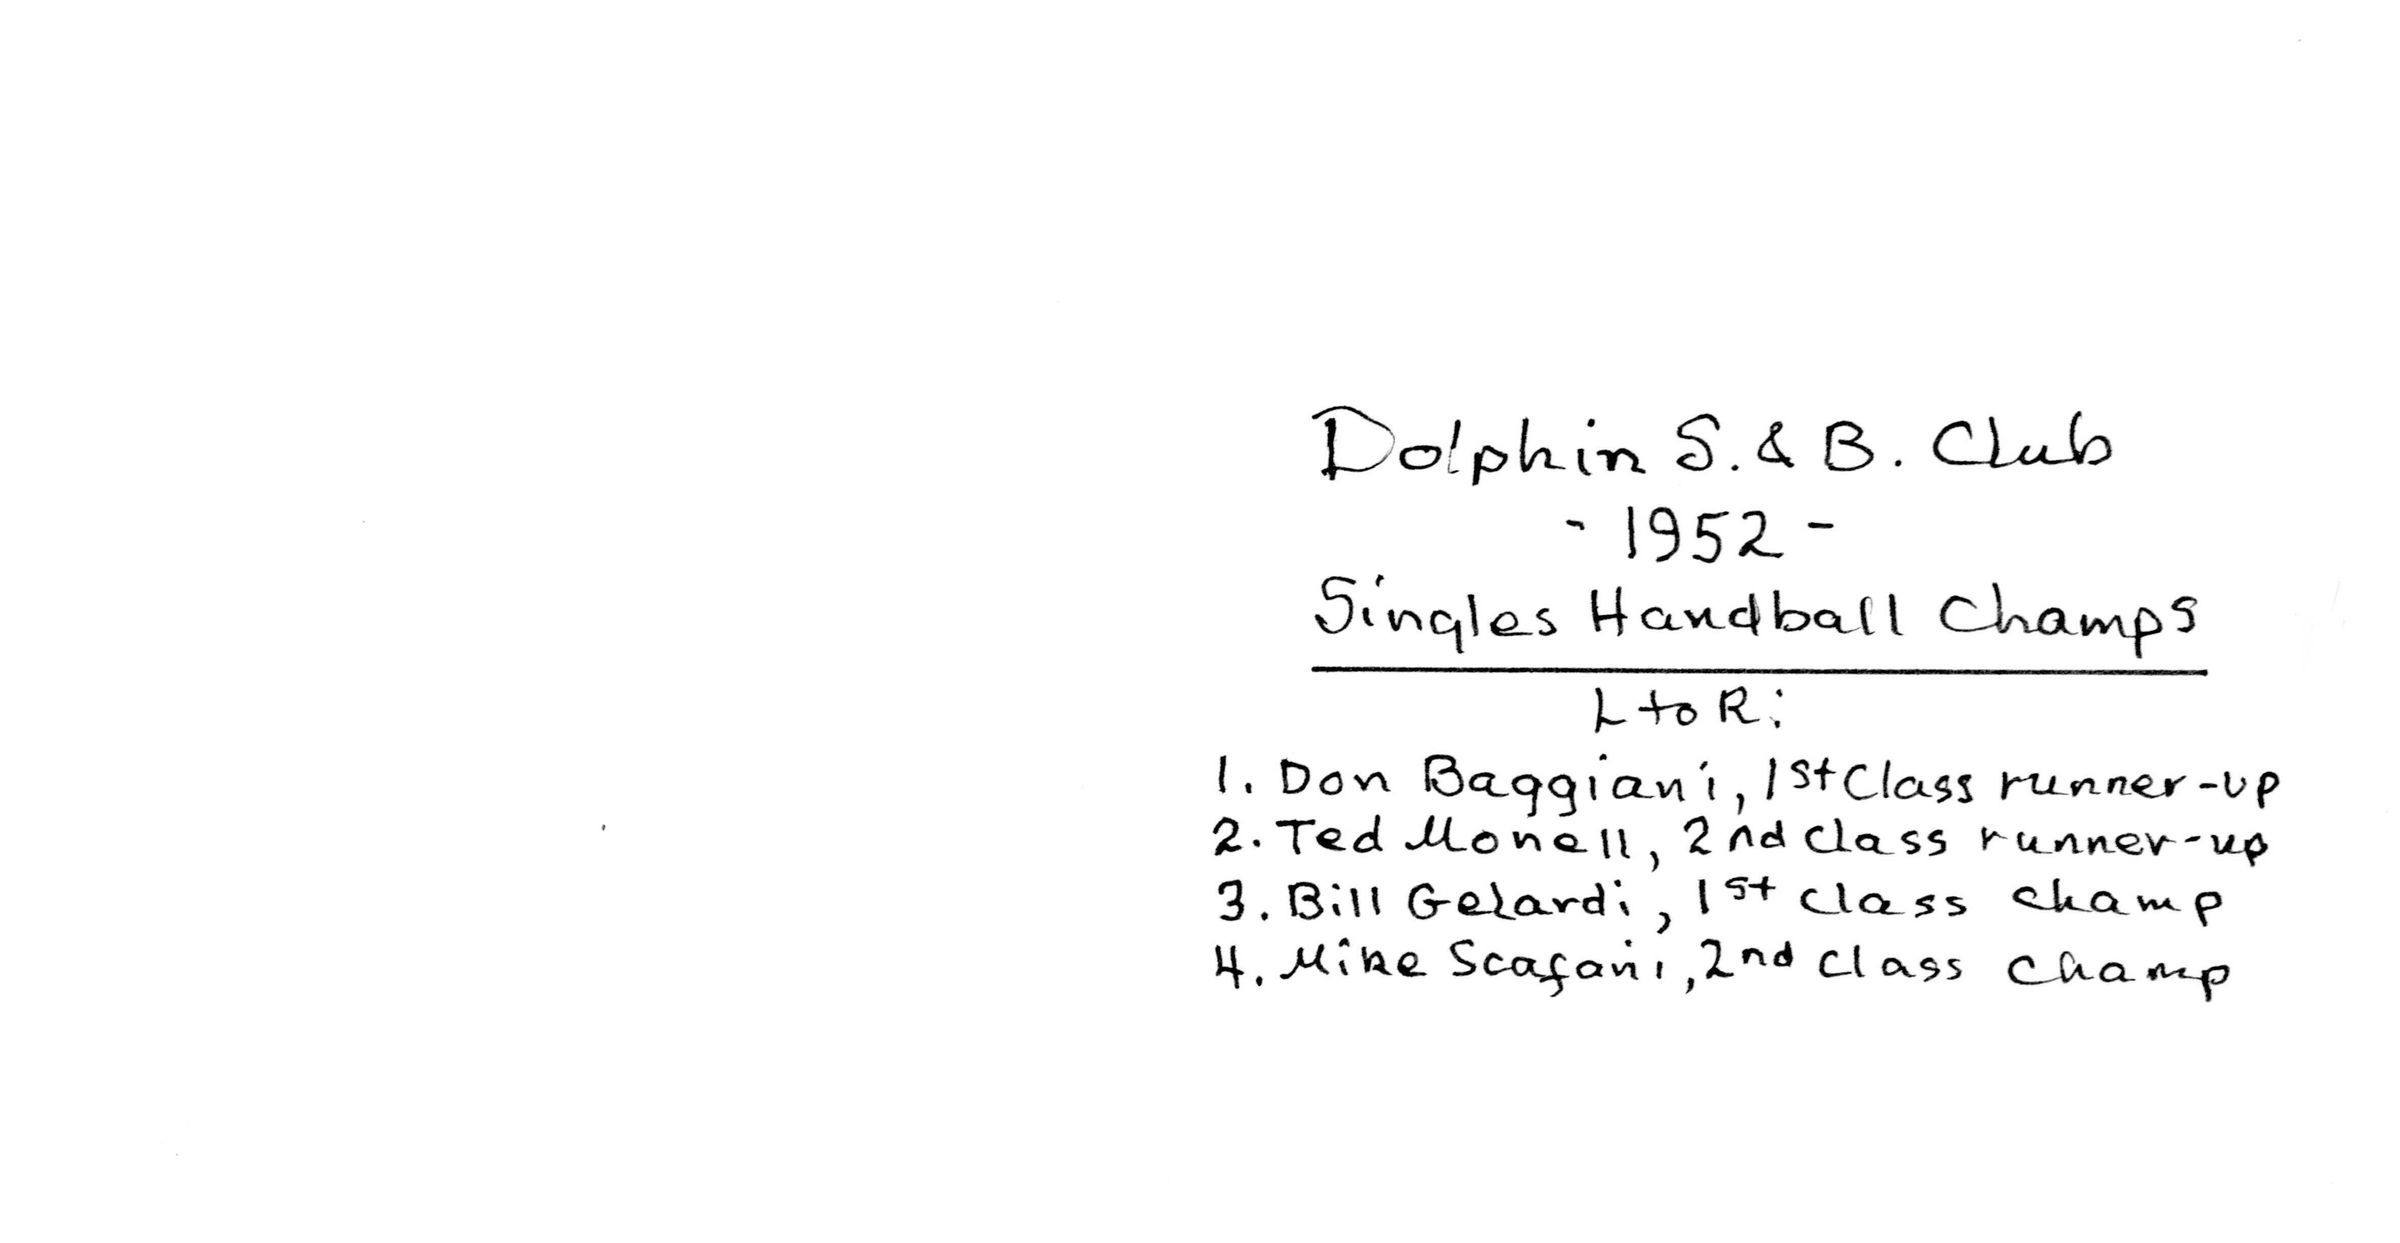 Dolphin S. & B. Club
- 1952 -
Singles Handball Champs
L to R:
1. Don Baggiani, 1st Class runner-up
2. Ted Monell, 2nd class runner-up
3. Bill Gelardi, 1st class champ
4. Mike Scafani, 2nd class champ